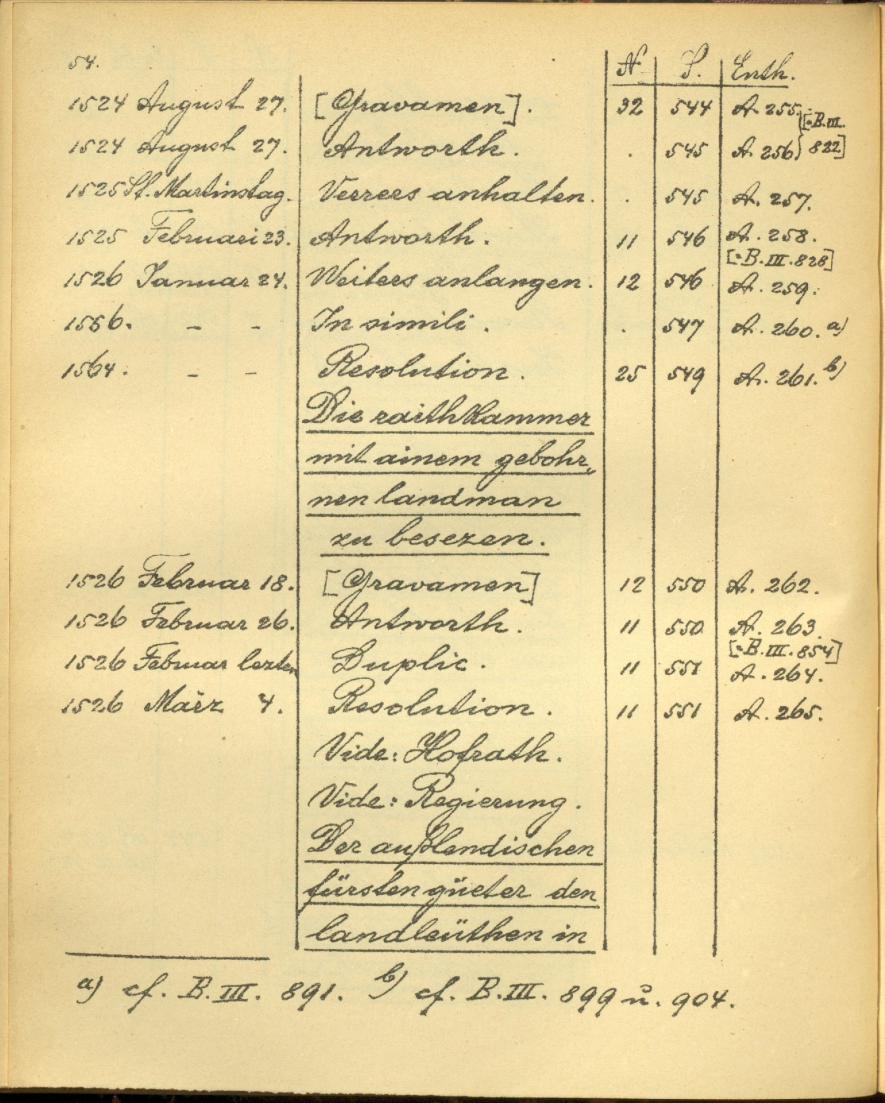 54.
N. S. Enth.
1524 August 27. [Gravamen]. 32 544 A. 255.
[=B.III.
1524 August 27. Antworth. . 545 A. 256} 822]
1525 St. Martinstag. Verrers anhalten. . 545 A. 257.
1525 Februari 23. Antworth. 11 546 A. 258.
[=B.III.828]
1526 Januar 24. Weiters anlangen. 12 546 A. 259.
1556. – – In simili. . 547 A. 260. a)
1564. – – Resolution. 25 549 A. 261. b)
Die raithkammer
mit ainem gebohr„
nen landman
zu besezen.
1526 Februar 18. [Gravamen] 12 550 A. 262.
1526 Februar 26. Antworth. 11 550 A. 263.
[=B.III.854]
1526 Februar lezten Duplic. 11 551 A. 264.
1526 März 4. Resolution. 11 551 A. 265.
Vide: Hofrath.
Vide: Regierung.
Der außlendischen
fürsten güeter den
landleüthen in
a) cf. B.III. 891. b) cf. B.III. 899 u. 904.